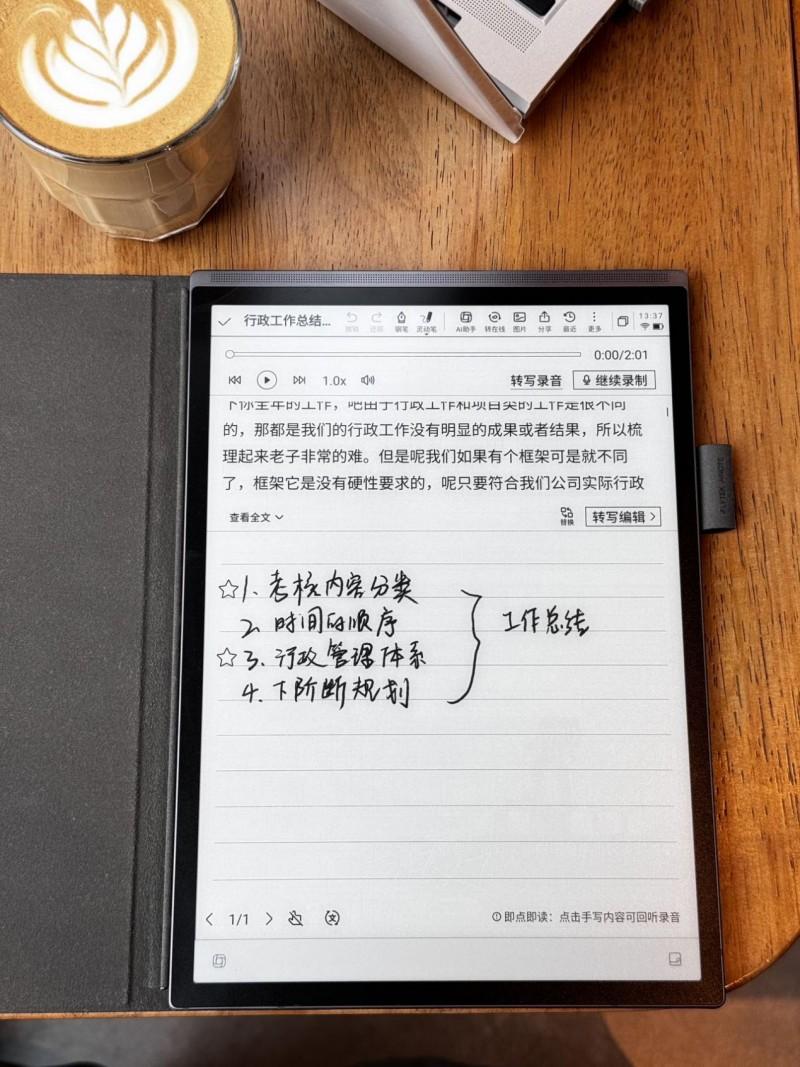 行政工作总结...
撤销 还原 钢笔 灵动笔 AI助手 转在线 图片 分享 最近 更多
13:37
0:00/2:01
1.0x 转写录音 继续录制
下你全年的工作，吧由于行政工作和项目类的工作是很不同
的，那都是我们的行政工作没有明显的成果或者结果，所以梳
理起来老子非常的难。但是呢我们如果有个框架可是就不同
了，框架它是没有硬性要求的，呢只要符合我们公司实际行政
查看全文 替换 转写编辑
☆1. 考核内容分类
2. 时间的顺序
工作总结
☆3. 行政管理体系
4. 下阶断规划
1/1 即点即读：点击手写内容可回听录音